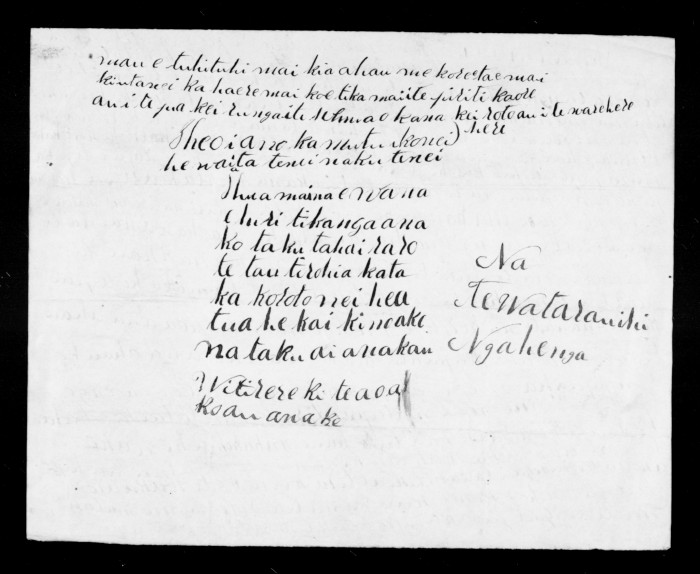 mau e tuhituhi mai kia ahau me korotae mai
kintanei ka haere mai koe tika mai i te piriti kaore
au i te pa kei runga i te kona kei roto au i te warehere
Heoi ano ka mutu konei here
he waiata tenei naku tenei
Hua maina e wana
e huri tikanga ana
ko taku taha i raro
te tau tirohia kata
ka koroto nei hea
tua he kai kinoake
na taku di anakau
Witirere ki te aoa
ko au anake
Na
Te Wataranihi
Ngahenga